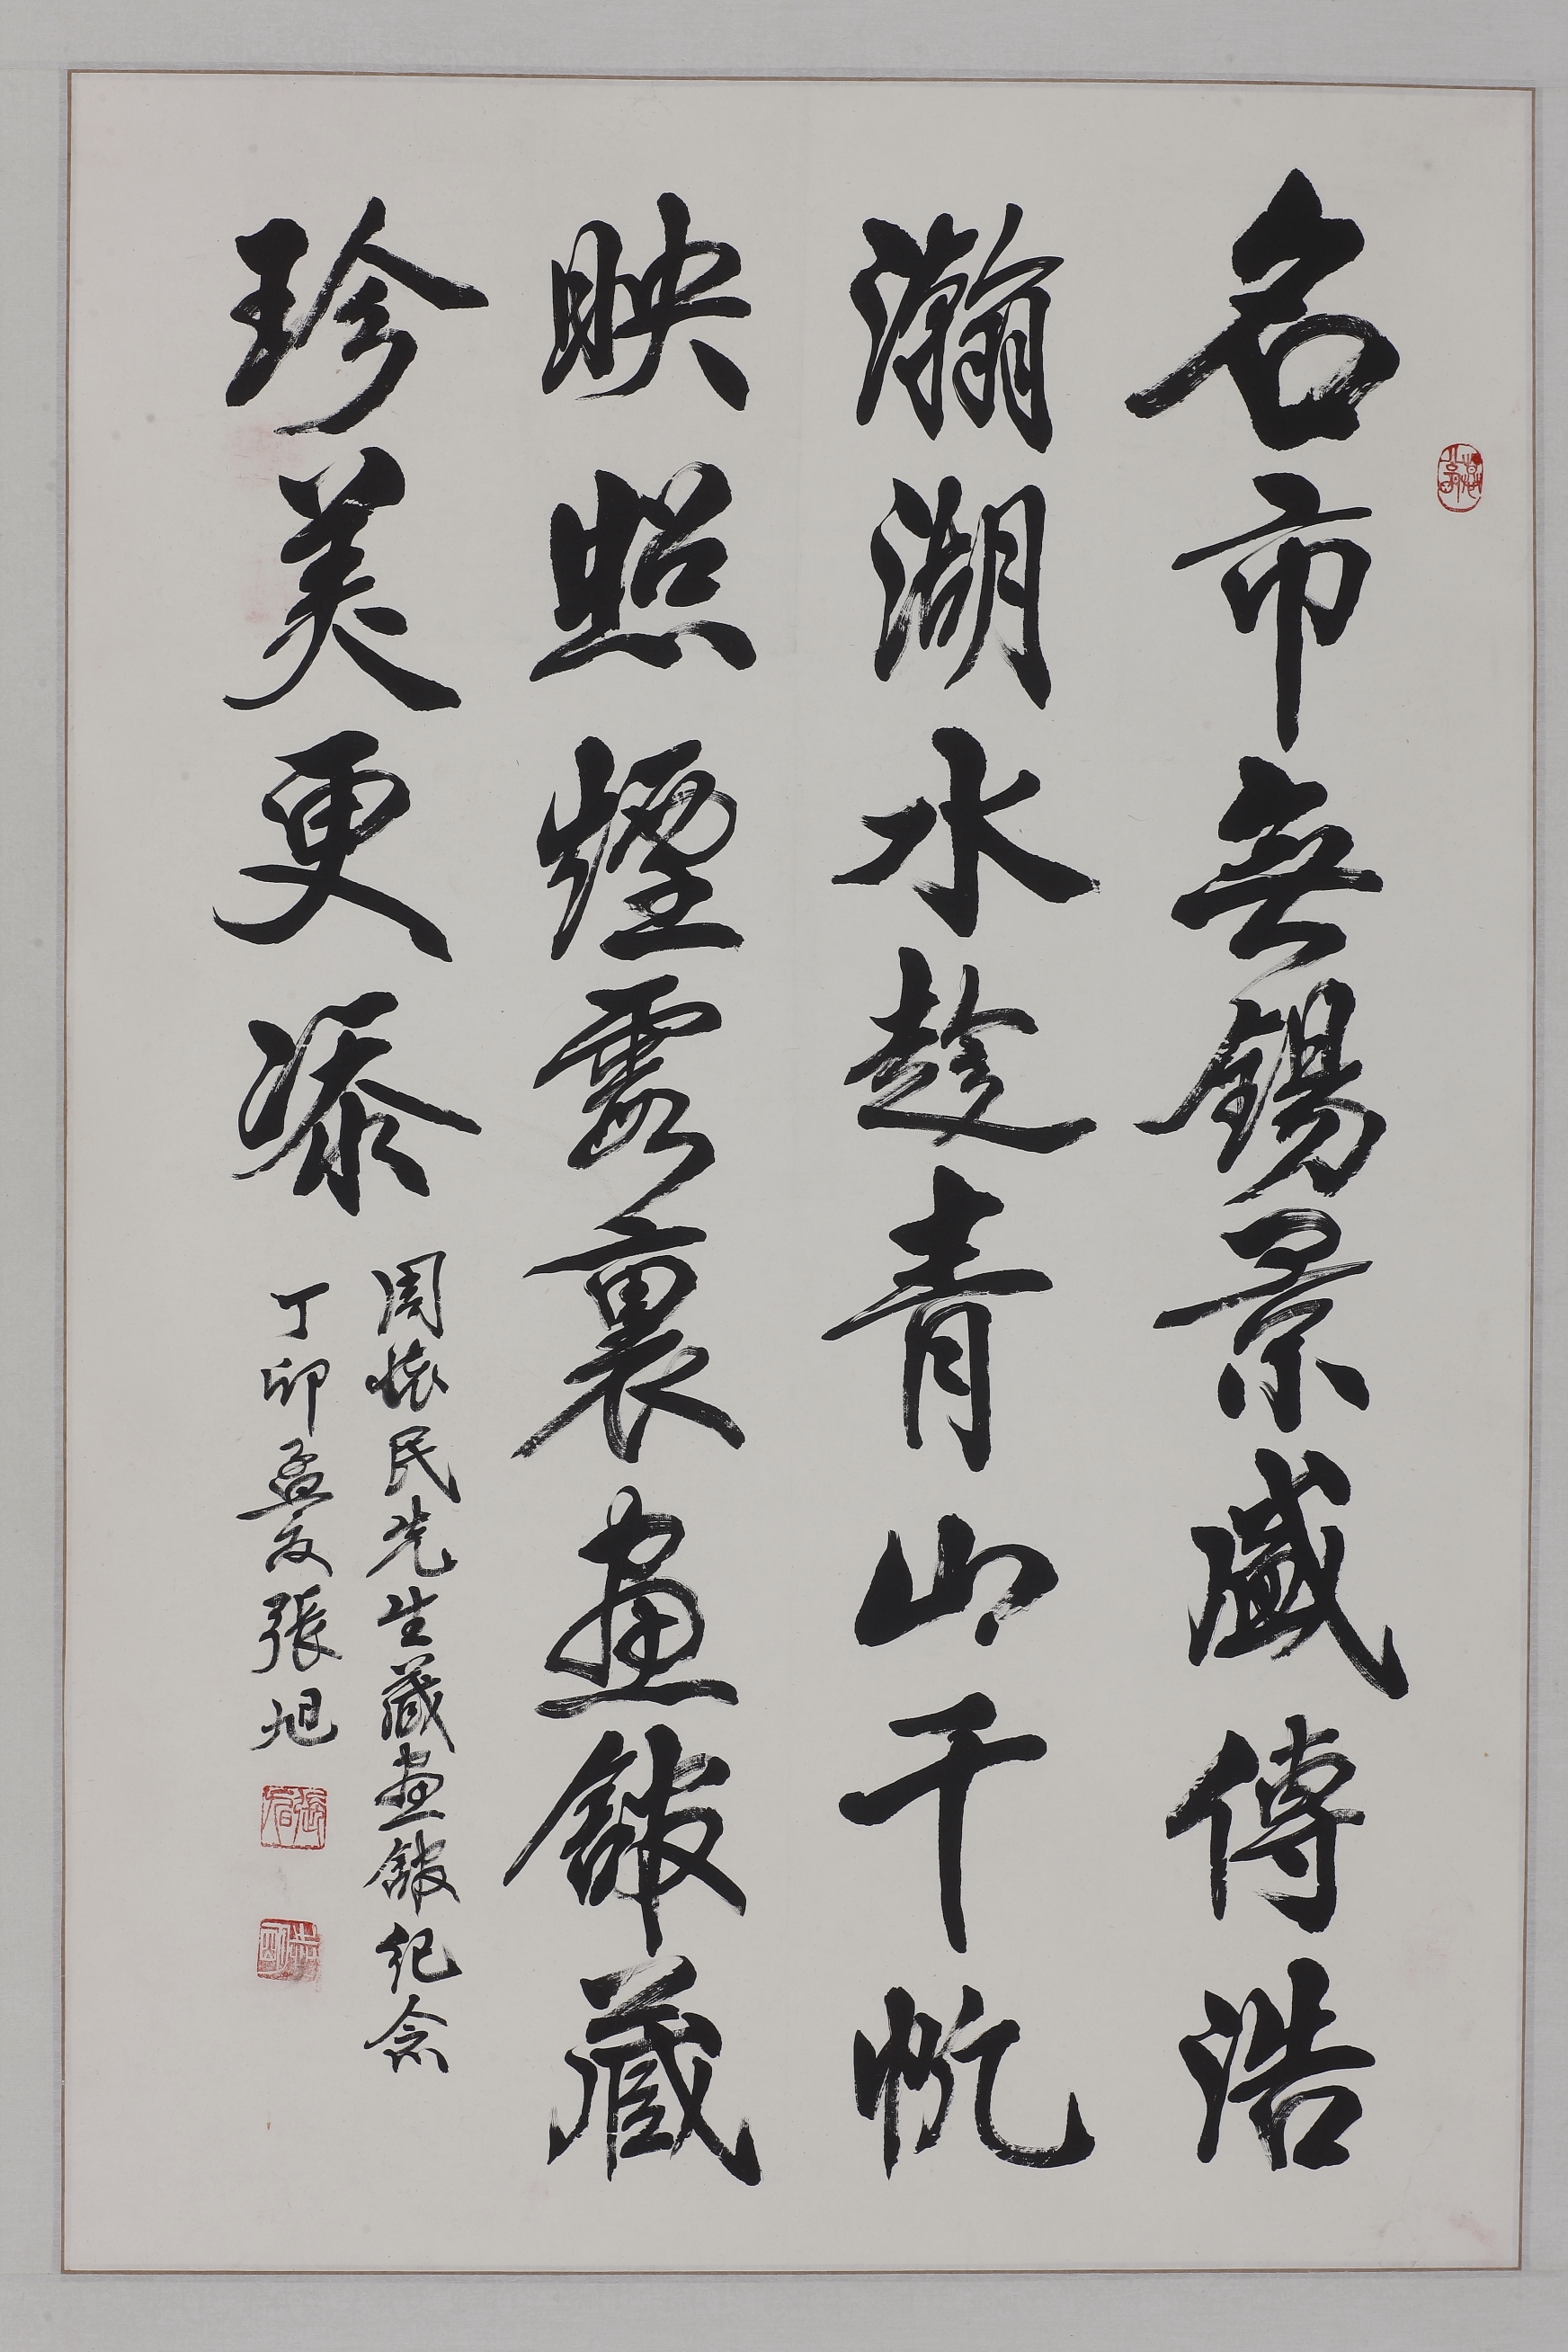 名市無錫景盛傳浩
瀚湖水趁青山千帆
映照煙霞裏畫館藏
珍美更添
周懷民先生藏畫館紀念
丁卯孟夏張旭